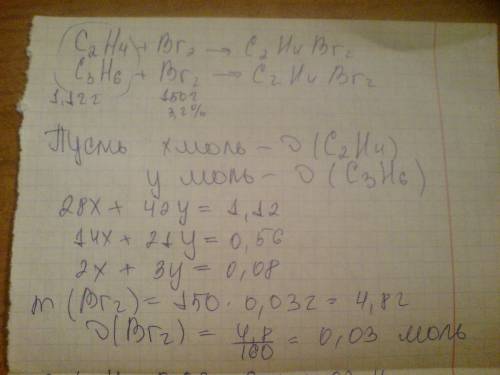 C2H4 + Br2 → C2H4Br2
C3H6 + Br2 → C2H4Br2
1,12г 150г
3,2%
Пусть x моль - ϑ (C2H4)
y моль - ϑ (C3H6)
28x + 42y = 1,12
14x + 21y = 0,56
2x + 3y = 0,08
m (Br2) = 150 · 0,032 = 4,82
ϑ(Br2) = 4,8/160 = 0,03 моль